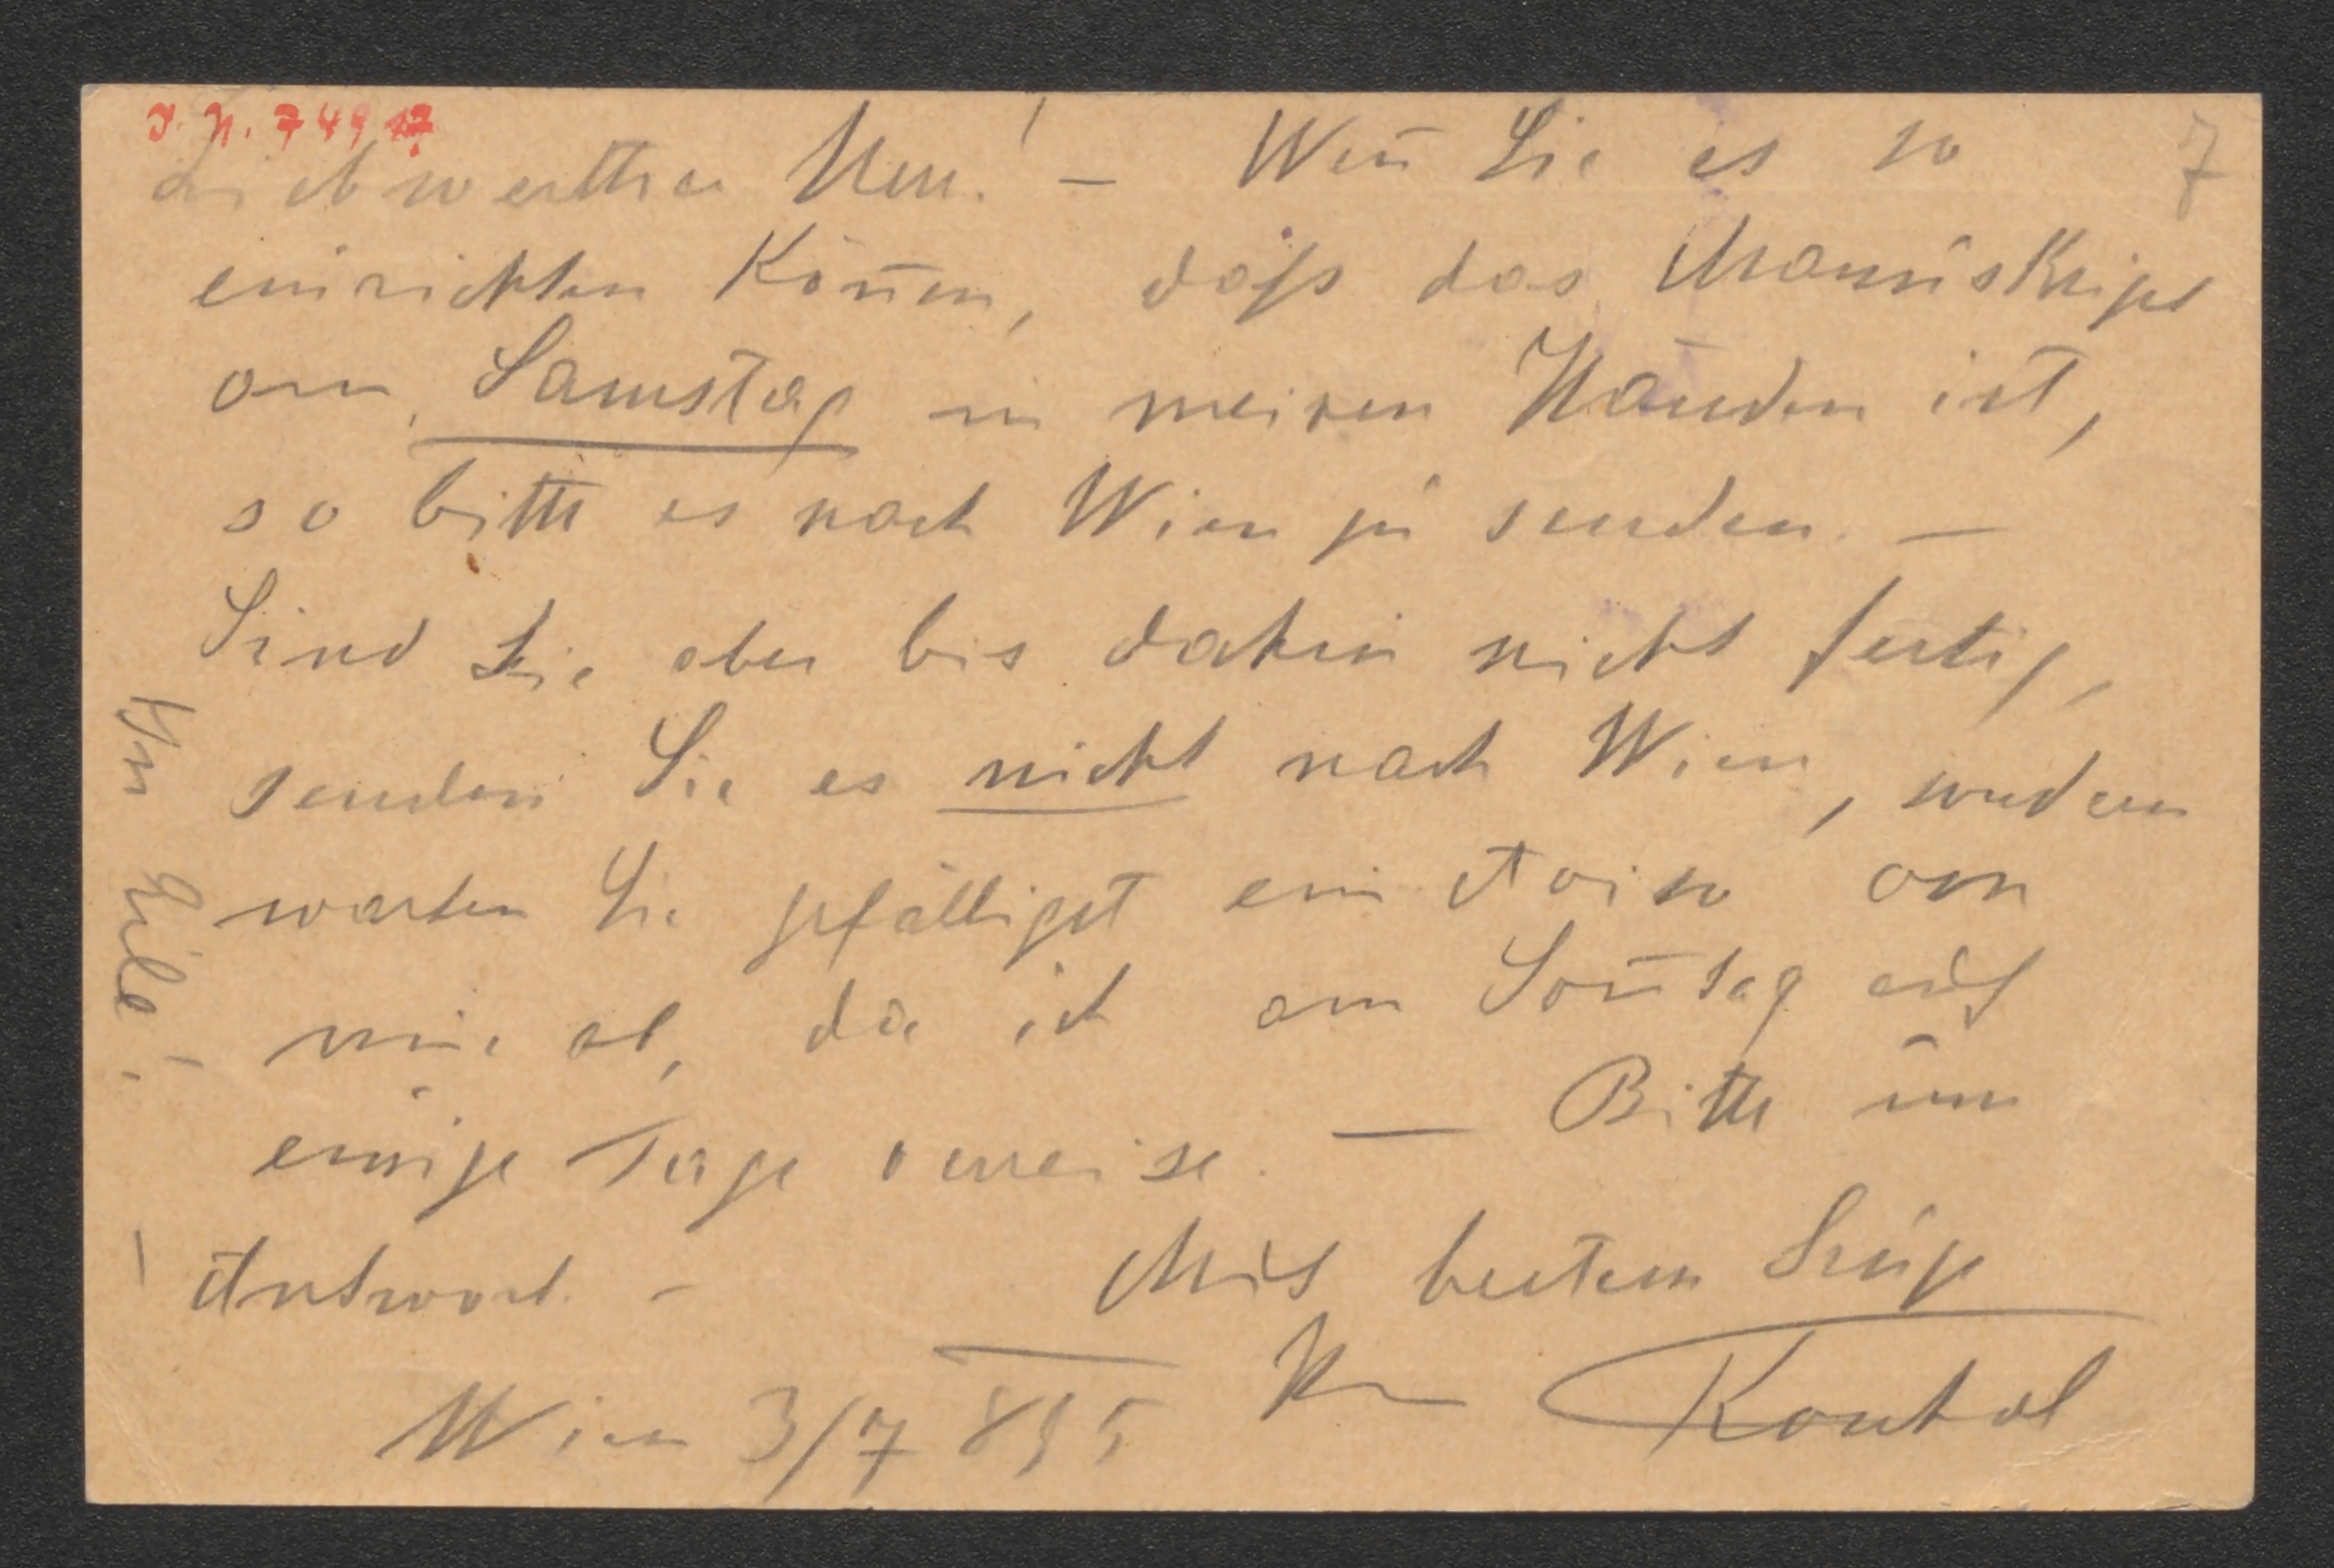 I. N. 74917
7
Liebwerther Herr! — Wen̄ Sie es so
einrichten kön̄en, daß das Manuskript
am Samstag in meinen Händen ist,
so bitte es nach Wien zu senden. —
Sind Sie aber bis dahin nicht fertig,
senden Sie es nicht nach Wien, sondern
warten Sie gefälligst ein Aviso von
mir ab, da ich am Son̄tag auf
einige Tage verreise. — Bitte um
Antwort. — Mit bestem Gruße
Ihr
Wien 3/7 895
In Eile! —